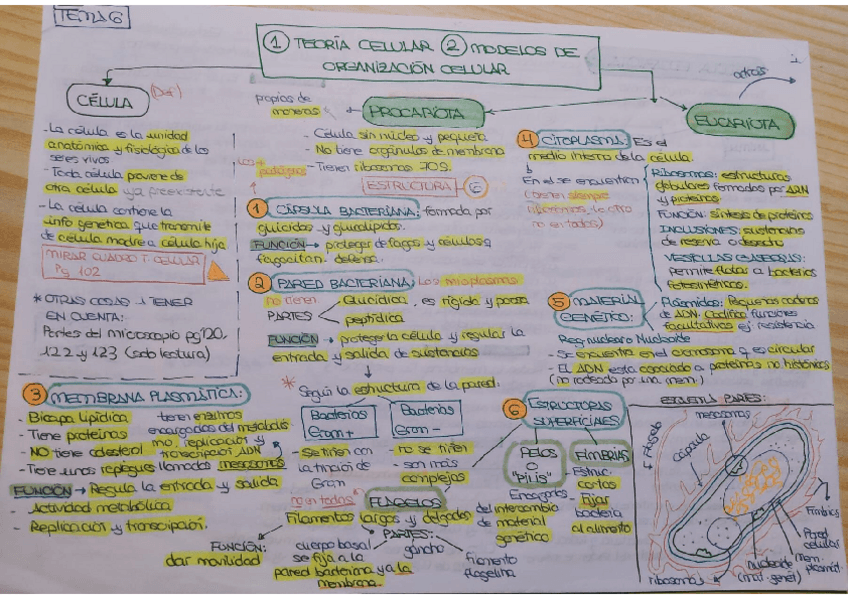 TEMA 6
① TEORÍA CELULAR ② MODELOS DE
ORGANIZACIÓN CELULAR
1
CÉLULA (Def)
- La célula es la unidad
anatómica y fisiológica de los
seres vivos
- Toda célula proviene de
otra célula ya preexistente
- La célula contiene la
info genética que transmite
de célula madre a célula hija
MIRAR CUADRO T. CELULAR
Pg 102
* OTRAS COSAS A TENER
EN CUENTA:
Partes del microscopio pg 120,
122 y 123 (solo lectura)
propias de
moneras
PROCARIOTA
- Célula sin núcleo y pequeña
- No tiene orgánulos de membrana
- Tienen ribosomas 70S.
Las +
ESTRUCTURA - 6
1 CÁPSULA BACTERIANA: formada por
glucidos y glucolipidos.
FUNCIÓN → proteger de fagos y células q
fagocitan. defensa.
2 PARED BACTERIANA: Los micoplasmas
no tienen
PARTES
Glucídica, es rígida y porosa
peptídica
FUNCIÓN → proteger la célula y regular la
entrada y salida de sustancias
* Según la estructura de la pared:
Bacterias
Gram +
- se tiñen con
la tinción de
Gram
Bacterias
Gram -
- no se tiñen
- son más
complejas
3 MEMBRANA PLASMÁTICA:
- Bicapa lipídica
- Tiene proteínas
- NO tiene colesterol
- Tiene unos repliegues llamados mesosomas
tienen enzimas
encargadas del metabolis
mo, replicación y
transcripción ADN
FUNCIÓN → Regula la entrada y salida
- Actividad metabólica
- Replicación y transcripción.
no en todas
FLAGELOS
Filamentos largos y delgados
FUNCIÓN:
dar movilidad
PARTES:
cuerpo basal
se fija a la
pared bacteriana y a la
membrana.
gancho
filamento
flagelina
EUCARIOTA
detrás
4 CITOPLASMA: Es el
medio interno de la célula.
En él se encuentran
(tienen siempre
ribosomas, lo otro
no en todas)
Ribosomas: estructuras
globulares formados por ARN
y proteinas.
FUNCIÓN: síntesis de proteínas
INCLUSIONES: sustancias
de reserva o desecho
VESÍCULAS GASEOSAS:
permite flotar a bacterias
fotosintéticas.
5 MATERIAL
GENÉTICO:
Plásmidos: Pequeñas cadenas
de ADN. Codifica funciones
facultativas ej resistencia
Reg. nuclear o Nucleoide
- Se encuentra en el cromosoma q es circular
- EL ADN está asociado a proteínas no histónicas
(no rodeada por una mem.)
6 ESTRUCTURAS
SUPERFICIALES
PELOS
O
"PILIS"
Encargados
del intercambio
de material
genético
FIMBRIAS
Estruc.
cortas
Fijar
bacteria
al alimento
ESQUEMA PARTES:
mesosomas
Flagelo
cápsula
Fimbrias
Pared
celular
mem.
plasmát.
nucleoide
(mat. genét)
ribosomas